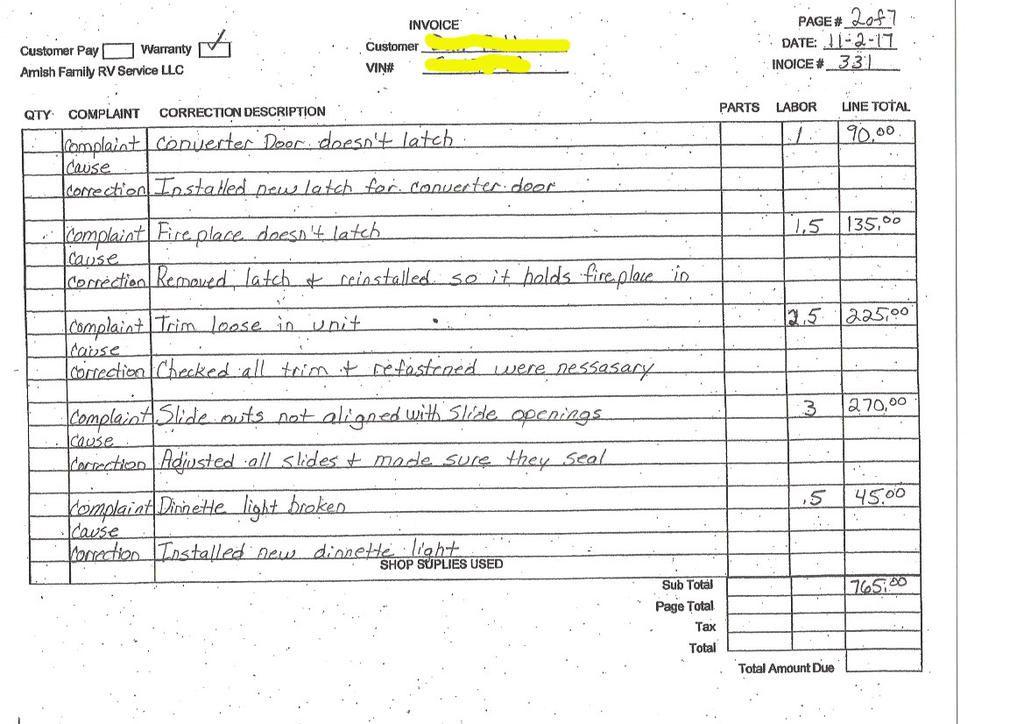 INVOICE
PAGE# 2of7
Customer Pay Warranty ✓ Customer DATE: 11-2-17
Amish Family RV Service LLC VIN# INOICE# 331
QTY COMPLAINT CORRECTION DESCRIPTION PARTS LABOR LINE TOTAL
Complaint Converter Door doesn't latch 1 90.00
Cause
Correction Installed new latch for converter door
Complaint Fireplace doesn't latch 1.5 135.00
Cause
Correction Removed latch + reinstalled so it holds fireplace in
Complaint Trim loose in unit 2.5 225.00
Cause
Correction Checked all trim + refastened were nessasary
Complaint Slide outs not aligned with Slide openings 3 270.00
Cause
Correction Adjusted all slides + made sure they seal
Complaint Dinnette light broken .5 45.00
Cause
Correction Installed new dinnette light
SHOP SUPLIES USED
Sub Total 765.00
Page Total
Tax
Total
Total Amount Due